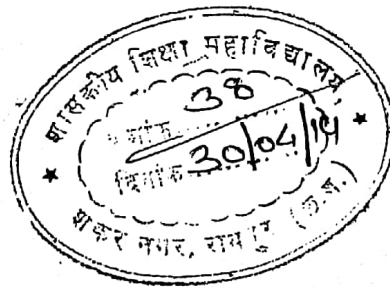 शासकीय शिक्षा महाविद्यालय,
38
दिनांक.......... 30/04/14
शंकर नगर, रायपुर (छ.ग.)